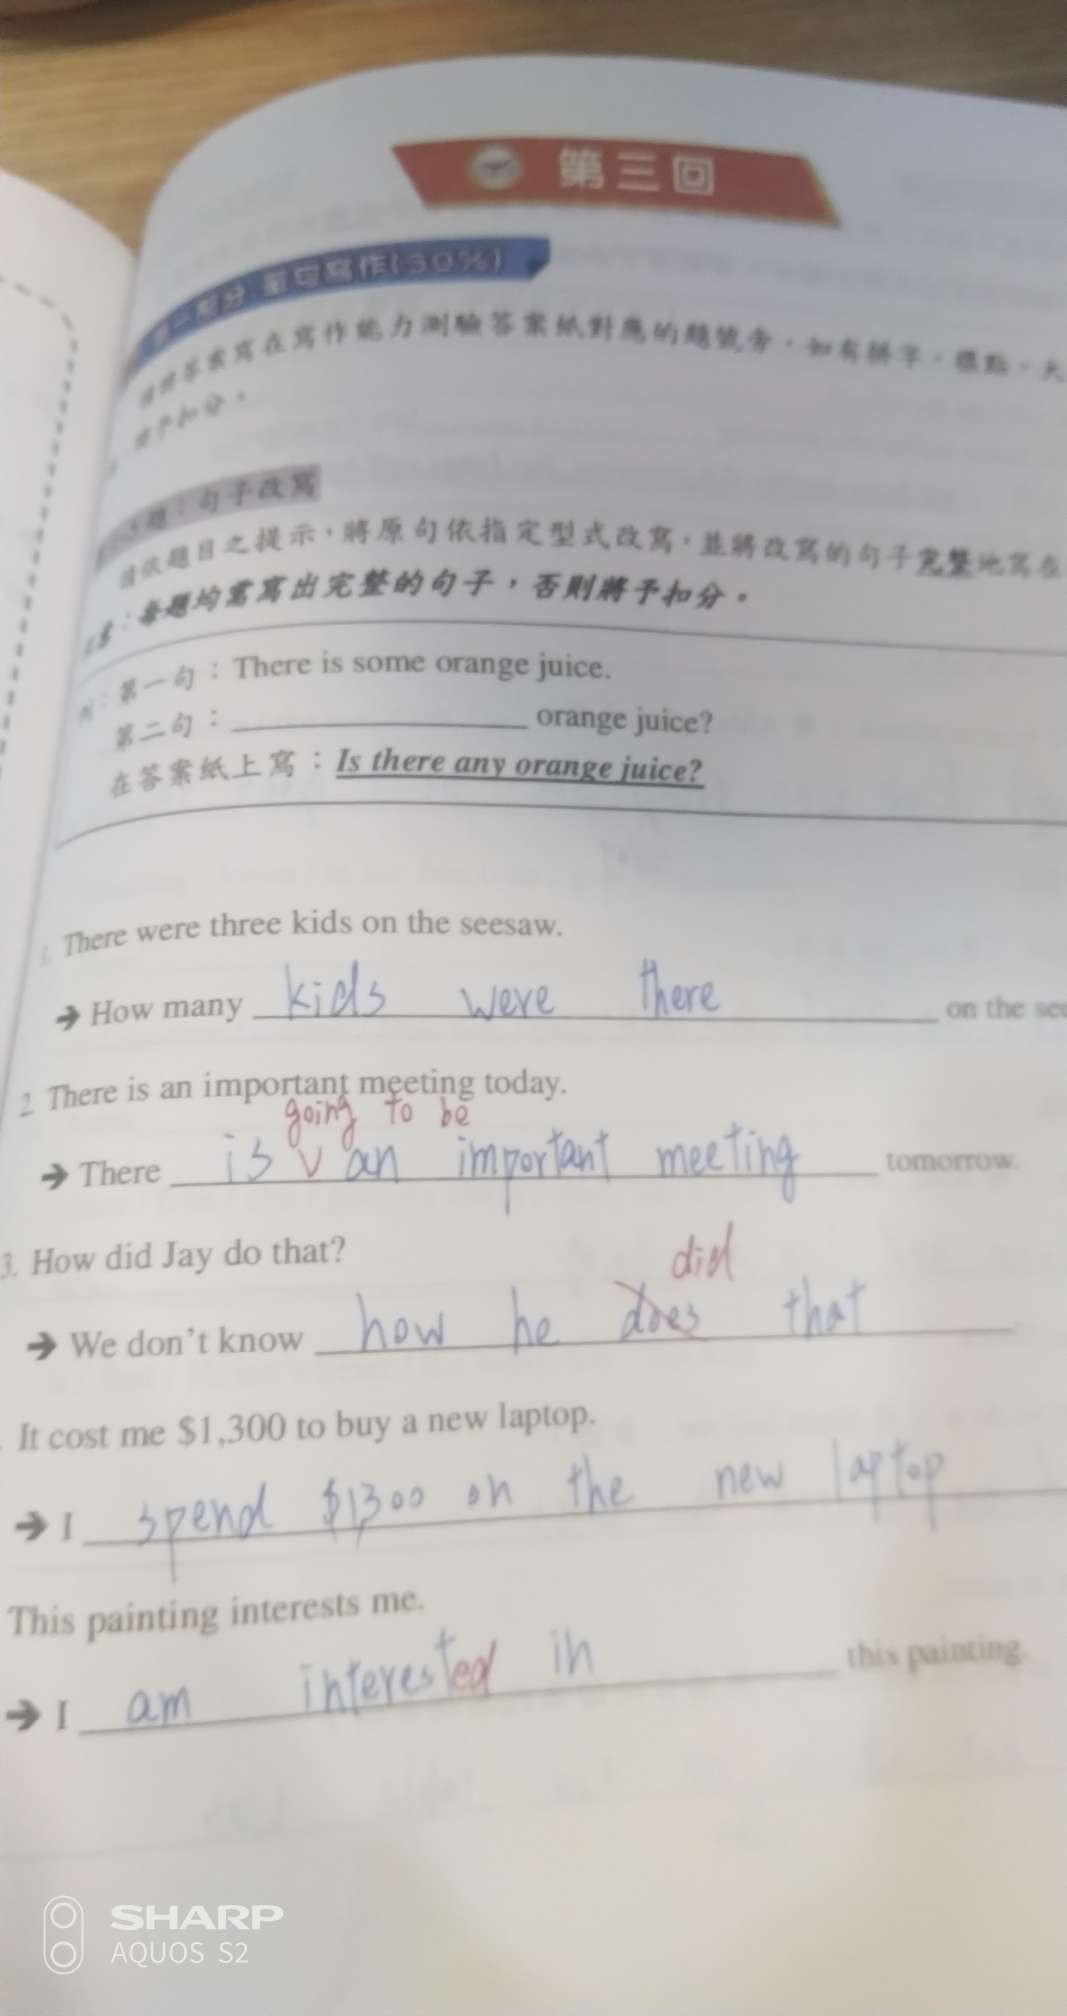 第三回
第一部分 單句寫作(30%)
請將答案寫在寫作能力測驗答案紙對應的題號旁，如有拼字、標點、大
予扣分。
題：句子改寫
請依題目之提示，將原句依指定型式改寫，並將改寫的句子完整地寫在
注意：每題均需寫出完整的句子，否則將予扣分。
例：第一句：There is some orange juice.
第二句：____________ orange juice?
在答案紙上寫：Is there any orange juice?
1. There were three kids on the seesaw.
➔ How many kids were there on the see
2. There is an important meeting today.
going to be
➔ There is v an important meeting tomorrow.
3. How did Jay do that?
did
➔ We don't know how he does that.
It cost me $1,300 to buy a new laptop.
➔ I spend $1,300 on the new laptop
This painting interests me.
➔ I am interested in this painting.
SHARP
AQUOS S2